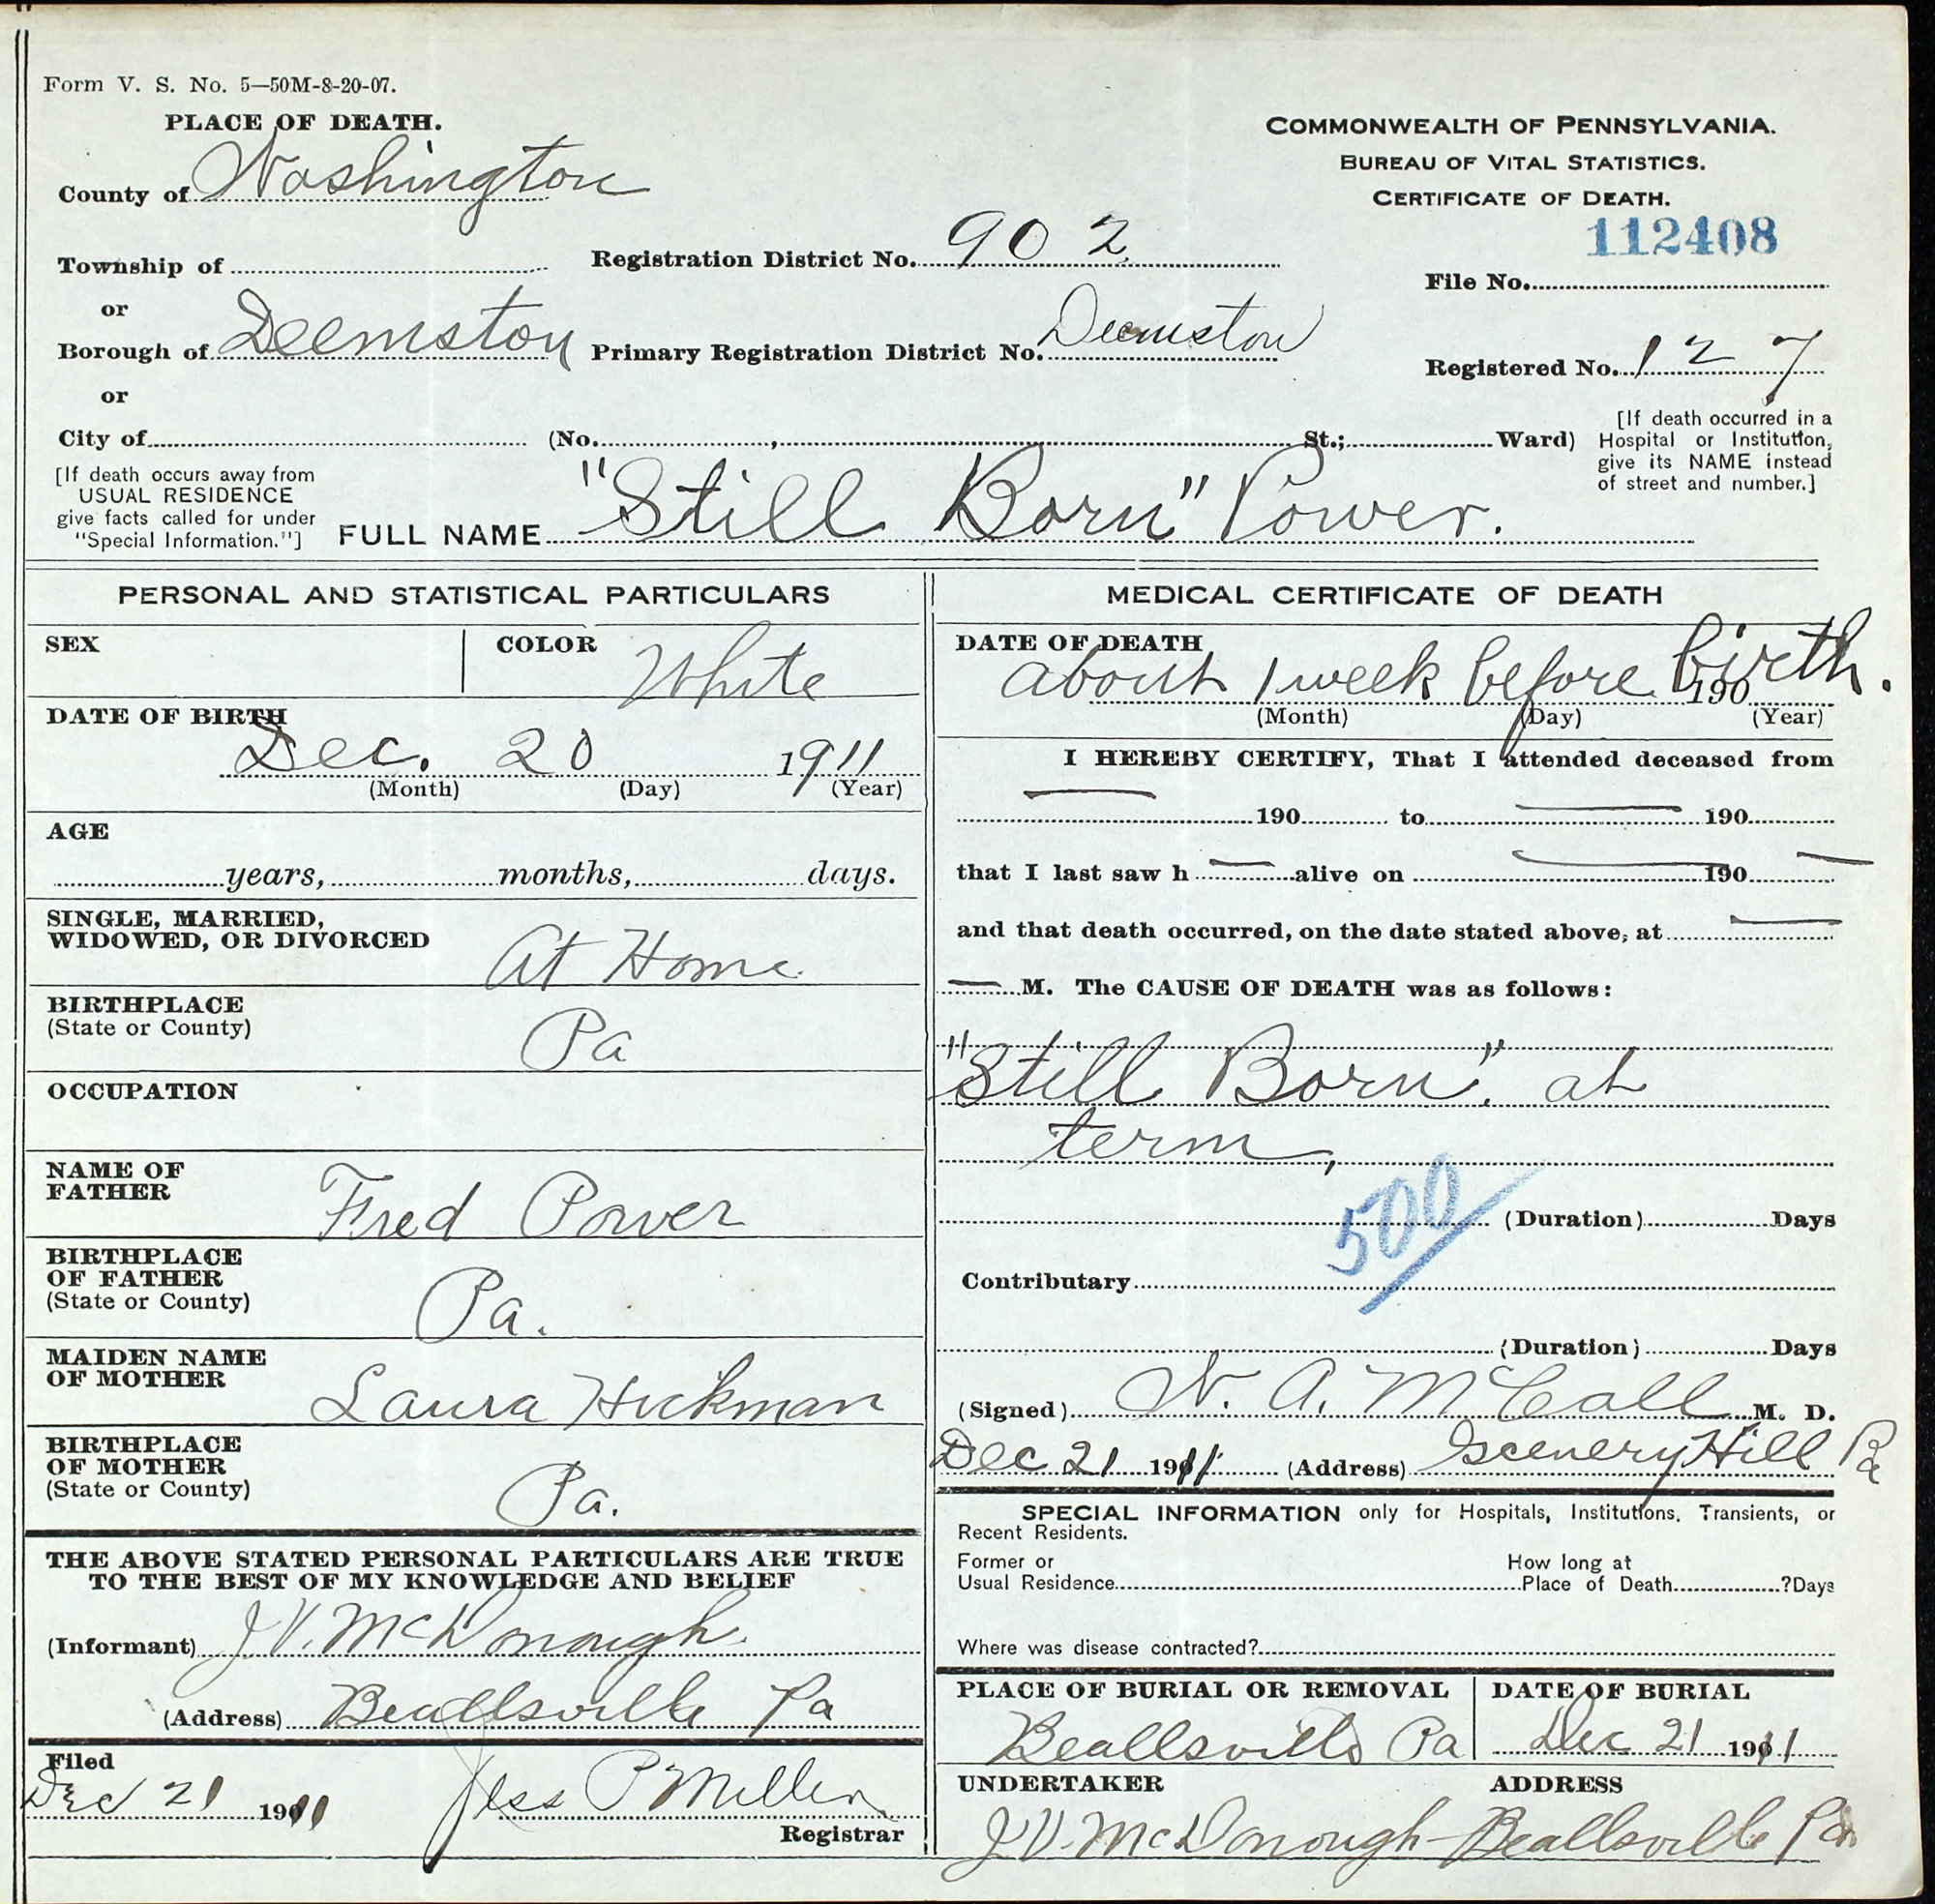 Form V. S. No. 5—50M-8-20-07.
PLACE OF DEATH.
County of Washington
Township of
or
Borough of Deemston
or
City of
Registration District No. 902
Primary Registration District No. Deemston
(No. , St.; Ward)
COMMONWEALTH OF PENNSYLVANIA.
BUREAU OF VITAL STATISTICS.
CERTIFICATE OF DEATH.
112408
File No.
Registered No. 127
[If death occurred in a
Hospital or Institution,
give its NAME instead
of street and number.]
[If death occurs away from
USUAL RESIDENCE
give facts called for under
"Special Information."]
FULL NAME "Still Born" Power.
PERSONAL AND STATISTICAL PARTICULARS
SEX
COLOR White
DATE OF BIRTH
Dec. 20 1911
(Month) (Day) (Year)
AGE
years, months, days.
SINGLE, MARRIED,
WIDOWED, OR DIVORCED
At Home
BIRTHPLACE
(State or County)
Pa
OCCUPATION
NAME OF
FATHER
Fred Power
BIRTHPLACE
OF FATHER
(State or County)
Pa.
MAIDEN NAME
OF MOTHER
Laura Hickman
BIRTHPLACE
OF MOTHER
(State or County)
Pa.
THE ABOVE STATED PERSONAL PARTICULARS ARE TRUE
TO THE BEST OF MY KNOWLEDGE AND BELIEF
(Informant) J.V. McDonough
(Address) Beallsville Pa
Filed
Dec 21 1911
Jess P Miller
Registrar
MEDICAL CERTIFICATE OF DEATH
DATE OF DEATH
about 1 week before birth. 190
(Month) (Day) (Year)
I HEREBY CERTIFY, That I attended deceased from
— 190 to — 190
that I last saw h — alive on — 190 —
and that death occurred, on the date stated above, at —
— M. The CAUSE OF DEATH was as follows:
"Still Born". at
term,
500
(Duration) Days
Contributary
(Duration) Days
(Signed) N. A. McCall M. D.
Dec 21 1911 (Address) Scenery Hill Pa
SPECIAL INFORMATION only for Hospitals, Institutions, Transients, or
Recent Residents.
Former or
Usual Residence
How long at
Place of Death ?Days
Where was disease contracted?
PLACE OF BURIAL OR REMOVAL
Beallsville Pa
DATE OF BURIAL
Dec 21 1911
UNDERTAKER
ADDRESS
J.V. McDonough - Beallsville Pa